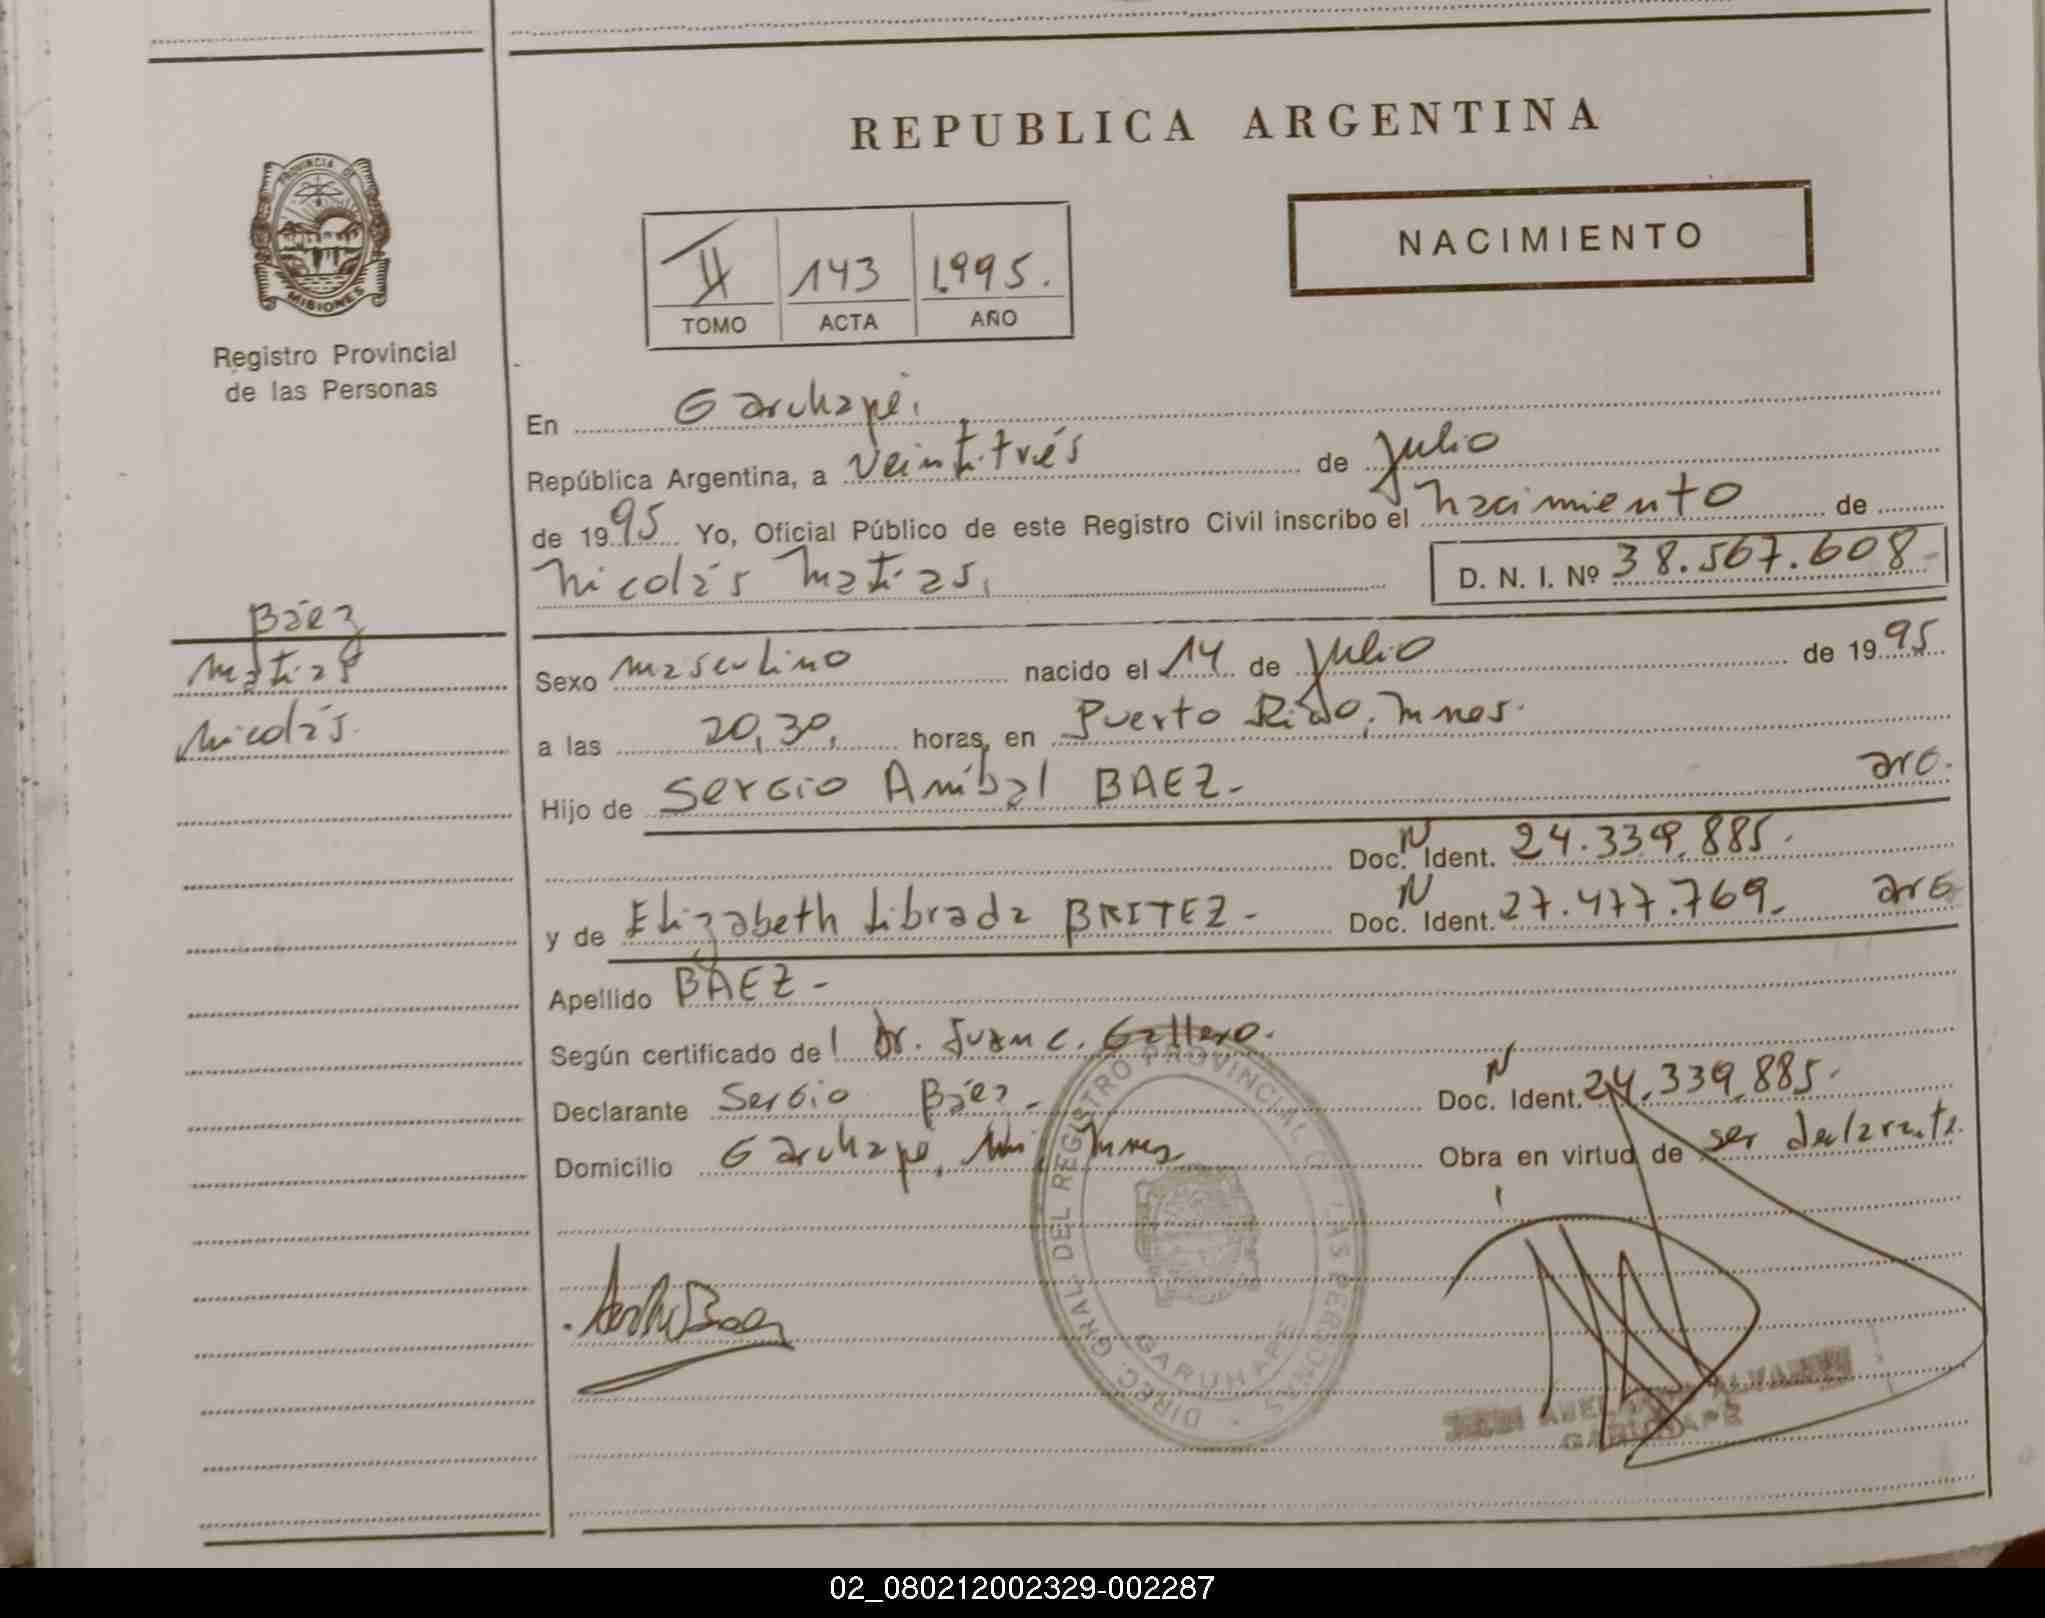 REPUBLICA ARGENTINA
NACIMIENTO
PROVINCIA DE
MISIONES
Registro Provincial
de las Personas
II 143 1.995.
TOMO ACTA AÑO
En Garuhapé.
República Argentina, a Veintitrés de Julio
de 1995 Yo, Oficial Público de este Registro Civil inscribo el nacimiento de
Nicolás Matias. D. N. I. Nº 38.567.608-
Báez
Matias
Nicolás.
Sexo masculino nacido el 14 de Julio de 1995
a las 20,30, horas, en Puerto Rico, Mnes.
Hijo de Sergio Aníbal BAEZ- arg.
Doc. N Ident. 24.339.885.
y de Elizabeth Librada BRITEZ- Doc. N Ident. 27.477.769- arg
Apellido BAEZ-
Según certificado del Dr. Juan C. Gallero.
Declarante Sergio Báez- Doc. N Ident. 24.339.885.
Domicilio Garuhapé, Mnes Obra en virtud de ser declarante.
DIREC. GRAL. DEL REGISTRO PROVINCIAL DE LAS PERSONAS
GARUHAPE
ALVAREZ
GARUHAPE
02_080212002329-002287